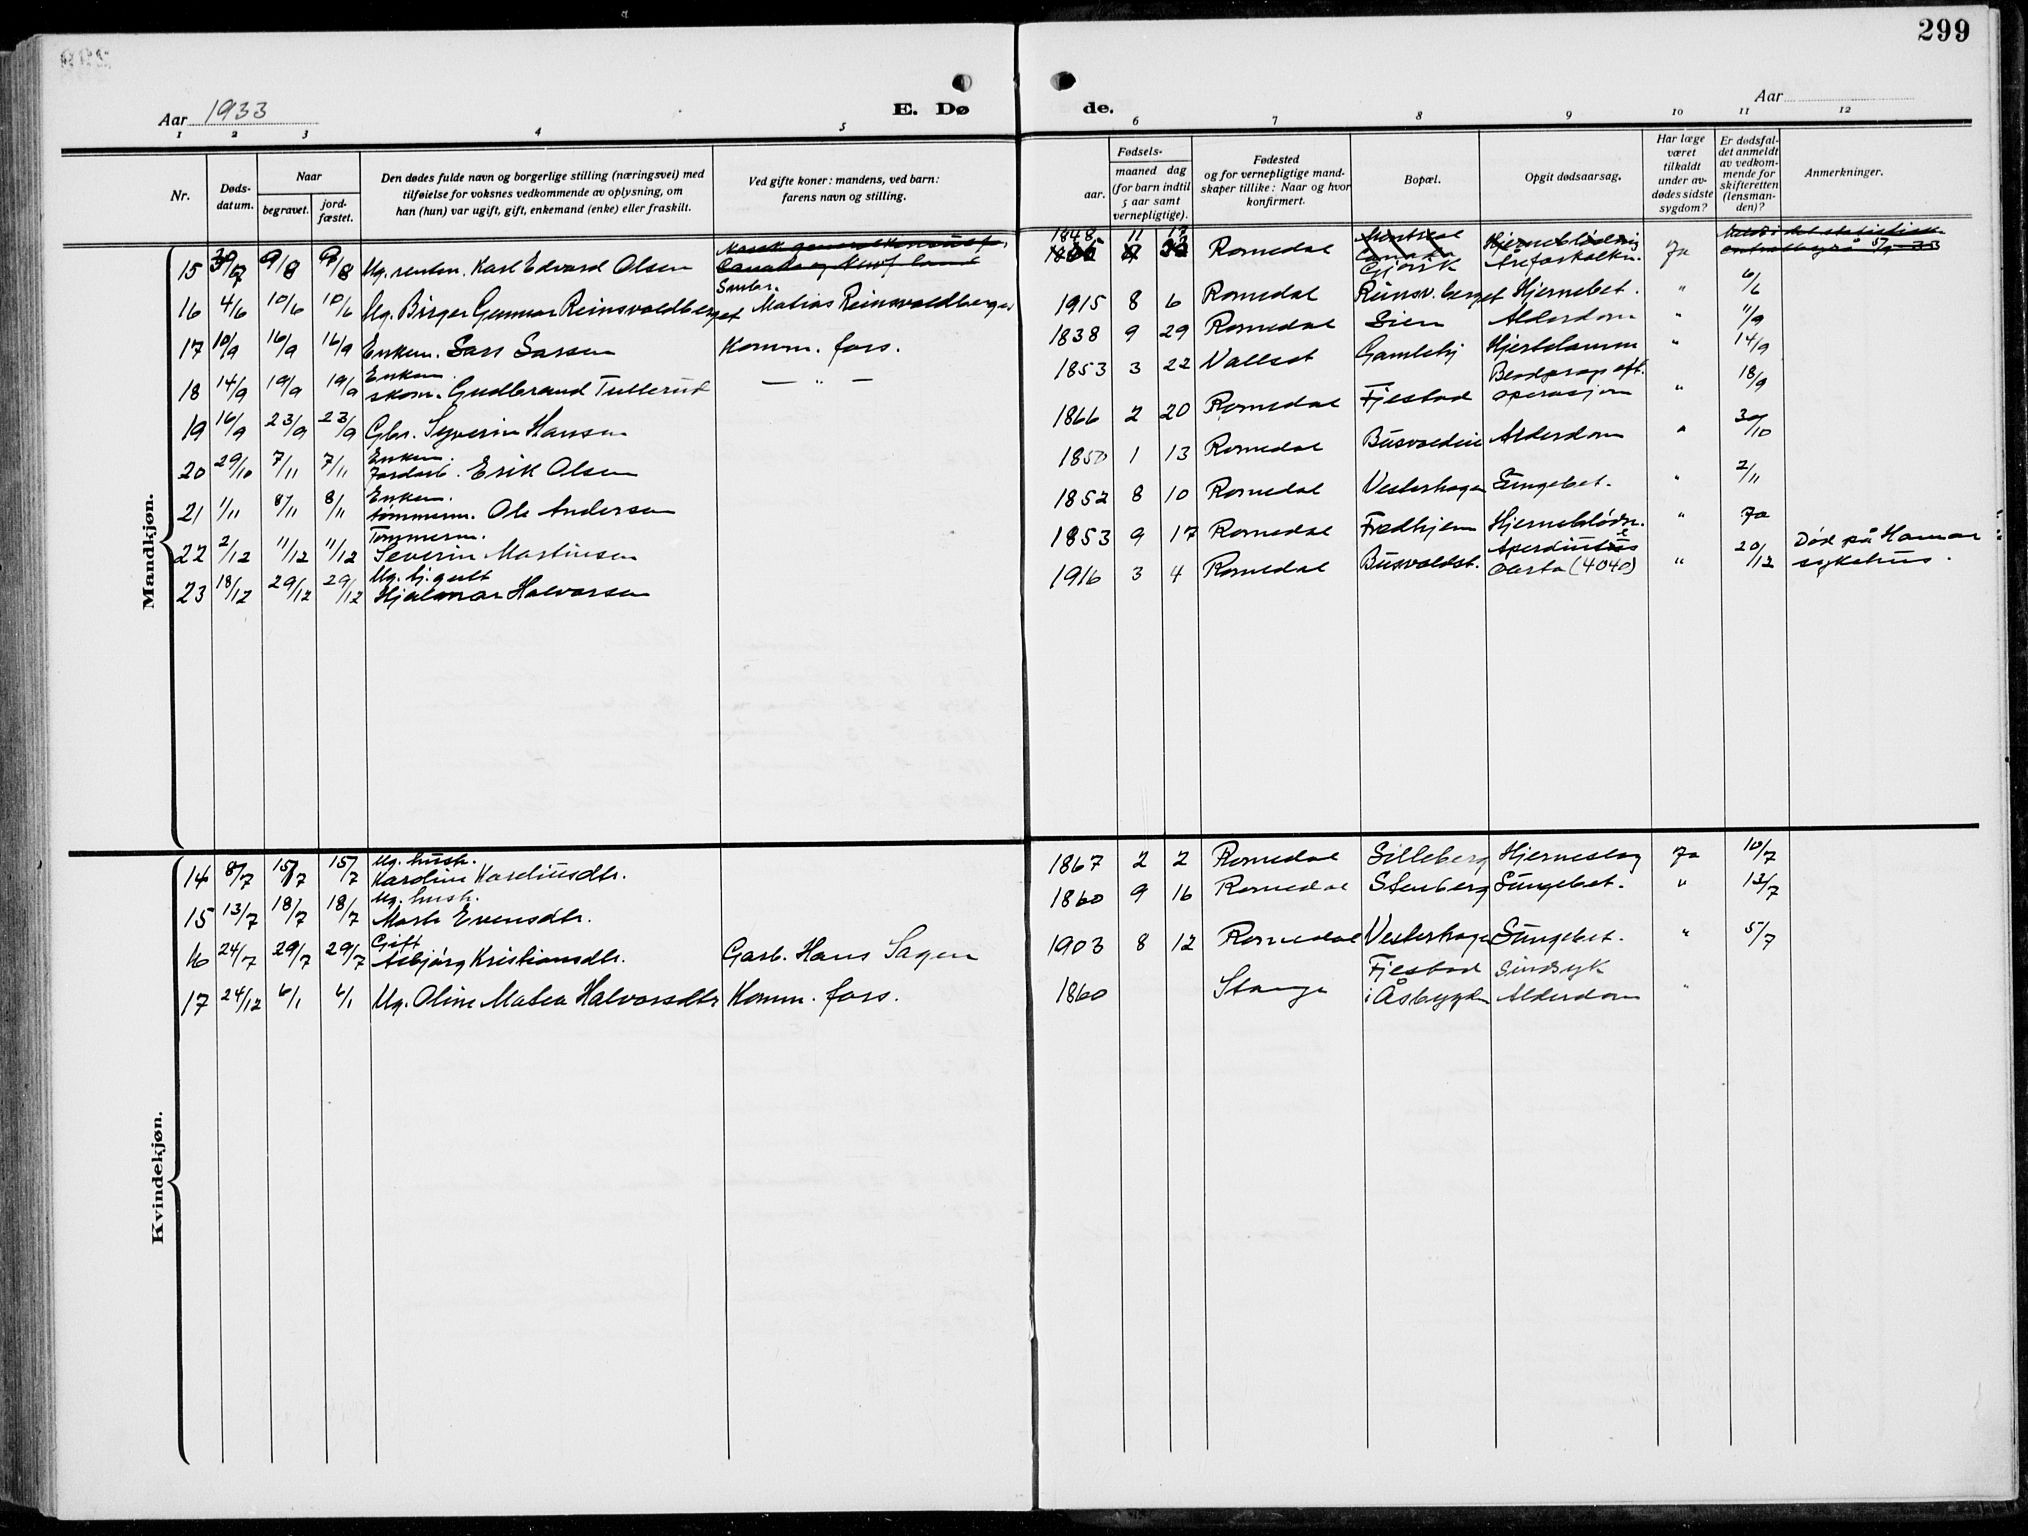 299
Aar 1933
E. Dø
de.
Aar
1 2 3 4 5 6 7 8 9 10 11 12
Nr.
Døds-
datum.
Naar
begravet.
jord-
fæstet.
Den dødes fulde navn og borgerlige stilling (næringsvei) med
tilføielse for voksnes vedkommende av oplysning, om
han (hun) var ugift, gift, enkemand (enke) eller fraskilt.
Ved gifte koner: mandens, ved barn:
farens navn og stilling.
Fødsels-
aar.
maaned dag
(for barn indtil
5 aar samt
vernepligtige).
Fødested
og for vernepligtige mand-
skaper tillike: Naar og hvor
konfirmert.
Bopæl.
Opgit dødsaarsag.
Har læge
været
tilkaldt
under av-
dødes sidste
sygdom?
Er dødsfal-
det anmeldt
av vedkom-
mende for
skifteretten
(lensman-
den)?
Anmerkninger.
Mandkjøn.
15 30/7 9/8 9/8 Ug. renten. Karl Edvard Olsen 1848 11 Romedal Gjøvik Åreforkalkn. Ja
16 4/6 10/6 10/6 Ug. Birger Gunnar Reinsvoldberget Småbr. Matias Reinsvoldberget 1915 8 6 Romedal Reinsv. berget Hjernebet. " 6/6
17 10/9 16/9 16/9 Enkem. Lars Larsen Komm. fors. 1838 9 29 Romedal Lien Alderdom " 11/9
18 14/9 19/9 19/9 Enkem. skom. Gudbrand Tullerud — " — 1853 3 22 Vallset Gamleby Hjertelamm " 14/9
19 16/9 23/9 23/9 Gbr. Syverin Hansen 1866 2 20 Romedal Fjestad Blodprop eft. operasjon " 18/9
20 29/10 7/11 7/11 Enkem. Jordarb. Erik Olsen 1850 1 13 Romedal Busvoldeie Alderdom " 30/10
21 1/11 8/11 8/11 Enkem. tømmerm. Ole Andersen 1852 8 10 Romedal Vesterhagen Lungebet. " 2/11
22 2/12 11/12 11/12 Tømmerm. Severin Martinsen 1853 9 17 Romedal Fredhjem Hjerneblødn. " Ja
23 18/12 29/12 29/12 Ug. hj. gutt Hjalmar Halvorsen 1916 3 4 Romedal Busvoldst. (4040) " 20/12 Død på Hamar sykehus.
Kvindekjøn.
14 8/7 15/7 15/7 Ug. hush. Karoline Kareliusdtr. 1867 2 2 Romedal Lilleberg Hjerneslag Ja 10/7
15 13/7 18/7 18/7 Ug. hush. Marte Evensdtr. 1860 9 16 Romedal Stenberg Lungebet. " 13/7
16 24/7 29/7 29/7 Gift Asbjørg Kristiansdtr. Garb. Hans Sagen 1903 8 12 Romedal Vesterhagen Lungebet. " 5/7
17 24/12 6/1 6/1 Ug. Oline Matea Halvorsdtr Komm. fors. 1860 Stange Fjestad i Åsbygda Sindsyk Alderdom "